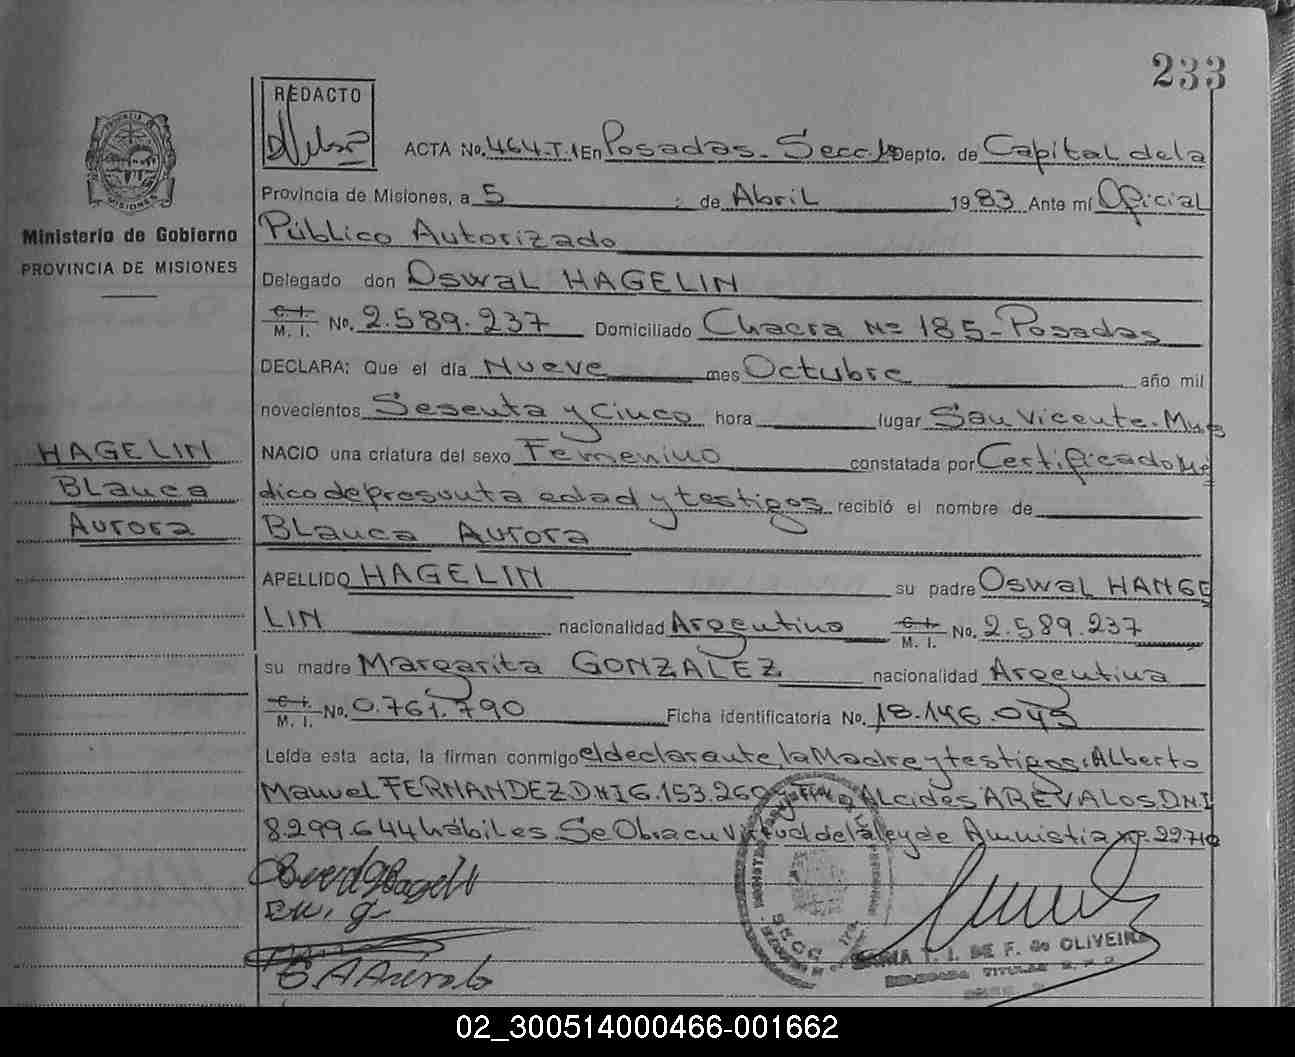 233
REDACTO
ACTA No. 464-T.1 En Posadas. Secc 1a Depto. de Capital de la
Provincia de Misiones, a 5 de Abril 1983 Ante mí Oficial
Ministerio de Gobierno
PROVINCIA DE MISIONES
Público Autorizado
Delegado don Oswal HAGELIN
C. I.
M. I. No. 2.589.237 Domiciliado Chacra Nº 185-Posadas
DECLARA: Que el día Nueve mes Octubre año mil
novecientos Sesenta y Cinco hora lugar San Vicente-Mnes
HAGELIN
Blanca
Aurora
NACIO una criatura del sexo Femenino constatada por Certificado Mé
dico de presunta edad y testigos recibió el nombre de
Blanca Aurora
APELLIDO HAGELIN su padre Oswal HANGE
LIN nacionalidad Argentino C. I.
M. I. No. 2.589.237
su madre Margarita GONZALEZ nacionalidad Argentina
C. I.
M. I. No. 0.761.790 Ficha identificatoria No. 18.146.045
Leída esta acta, la firman conmigo el declarante, la Madre y testigos: Alberto
Manuel FERNANDEZ DNI 6.153.260 Alcides AREVALOS DNI
8.299.644 hábiles. Se Obra en Virtud de la ley de Amnistia Nº 22.710
MARIA T. I. DE F. de OLIVEIRA
DELEGADA TITULAR
02_300514000466-001662